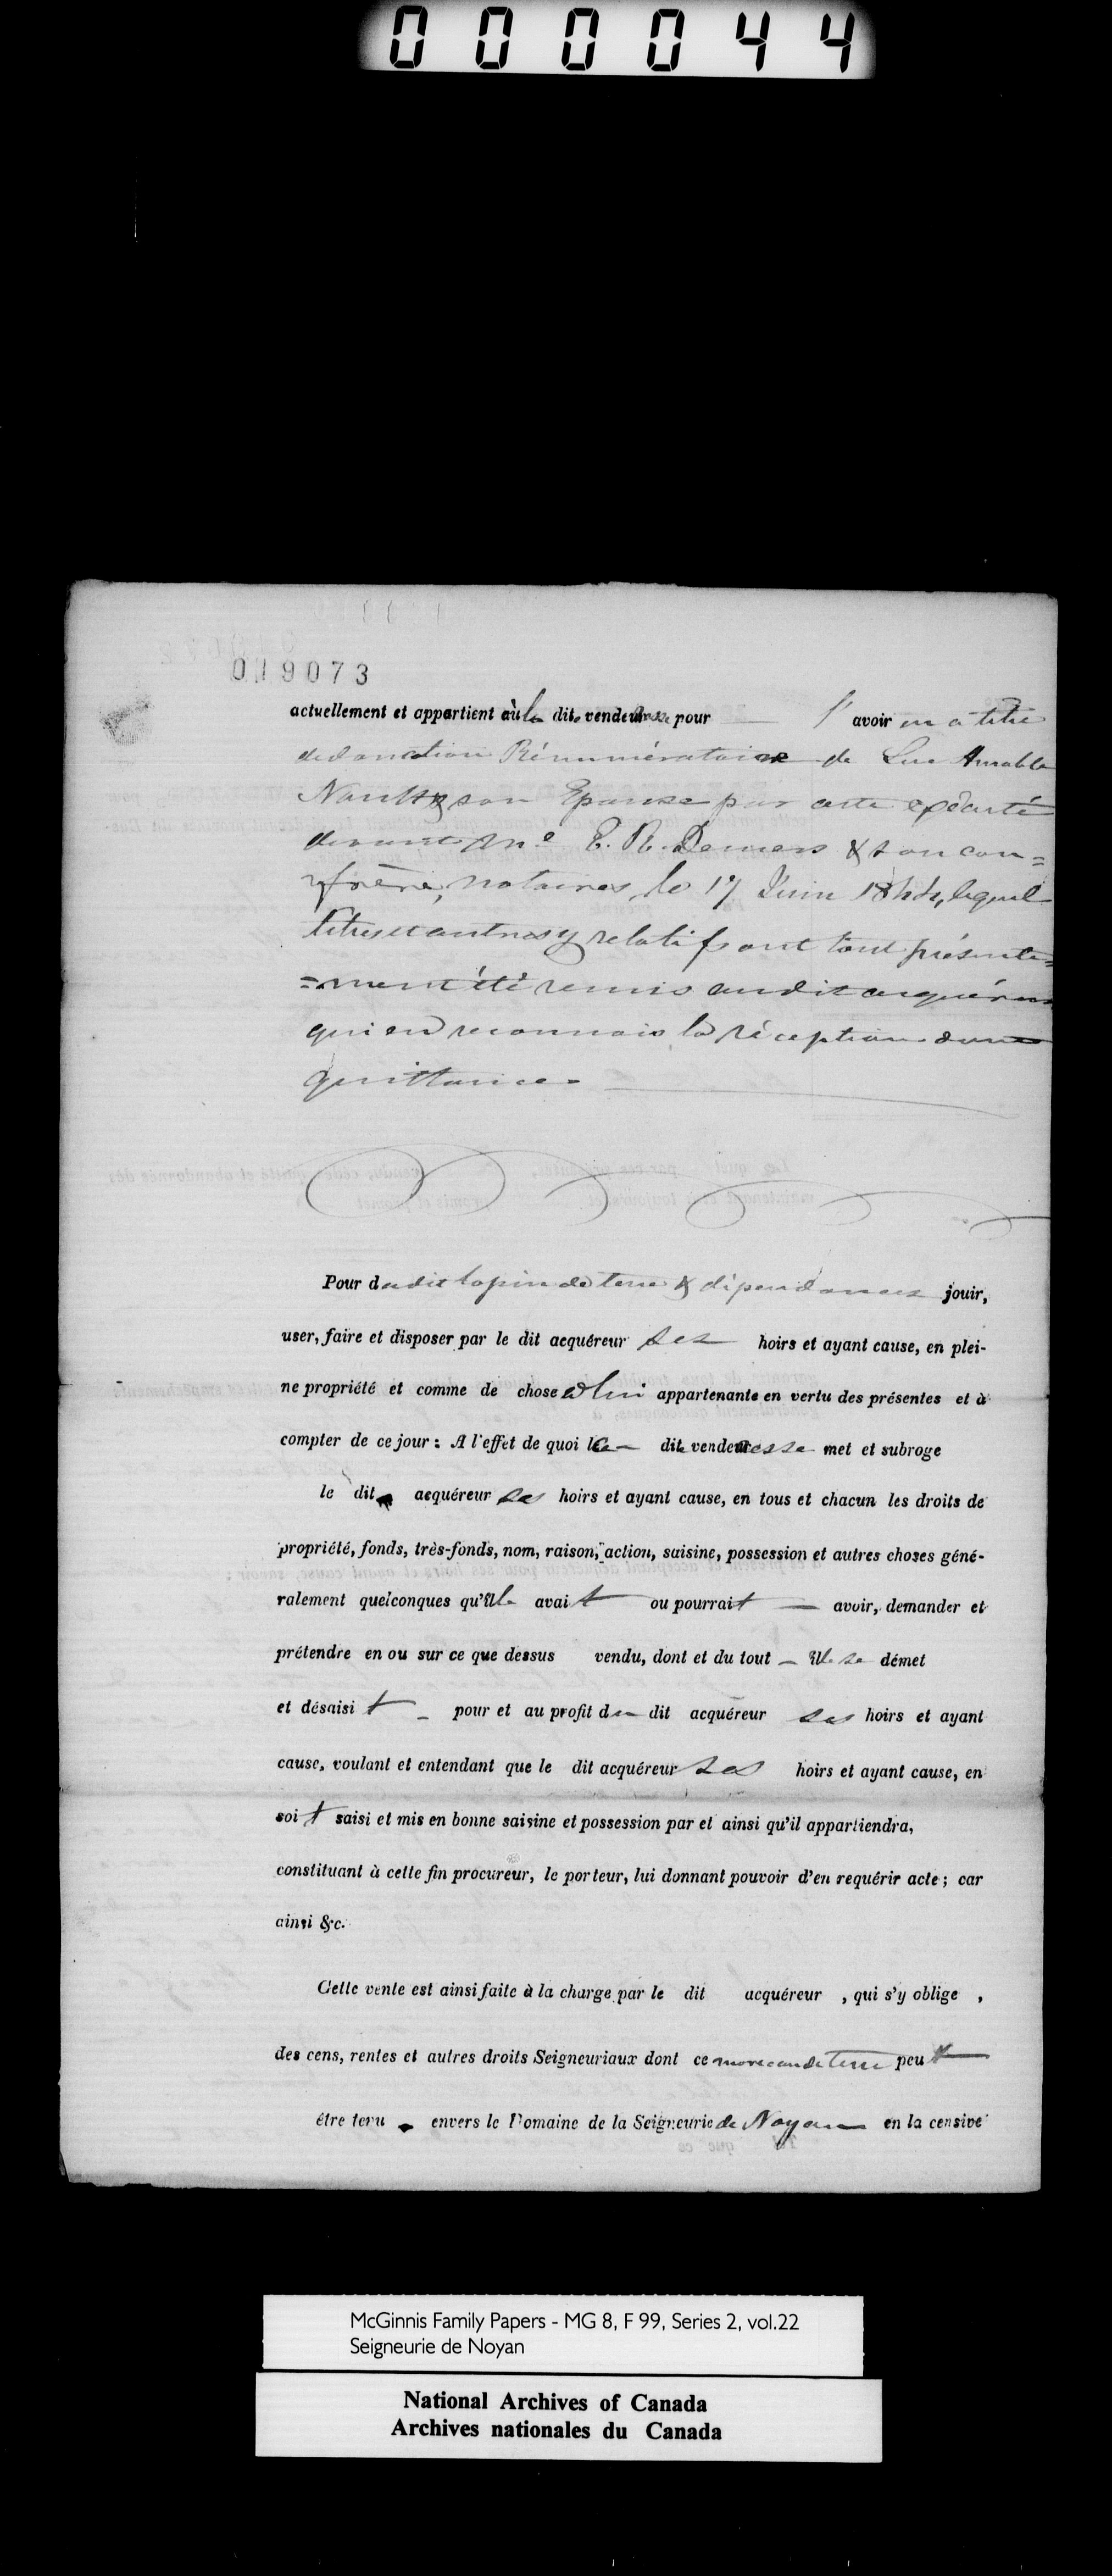 000044
019073
actuellement et appartient à la dite venderesse pour l'avoir eu à titre
de donation Rémunératoire de Luc Amable
son Epouse par acte exécuté
devant Me. E. R. Demers & son con=
frère, notaires, le 17 Juin 1844, lequel
titre et autres y relatifs ont tout présente=
=ment été remis audit acquéreur
qui en reconnais la réception dont
quittance.
Pour dudit lopin de terre & dépendances jouir,
user, faire et disposer par le dit acquéreur ses hoirs et ayant cause, en plei-
ne propriété et comme de chose à lui appartenante en vertu des présentes et à
compter de ce jour : A l'effet de quoi la dite venderesse met et subroge
le dit acquéreur ses hoirs et ayant cause, en tous et chacun les droits de
propriété, fonds, très-fonds, nom, raison, action, saisine, possession et autres choses géné-
ralement quelconques qu'elle avait ou pourrait avoir, demander et
prétendre en ou sur ce que dessus vendu, dont et du tout elle se démet
et désaisit pour et au profit du dit acquéreur ses hoirs et ayant
cause, voulant et entendant que le dit acquéreur ses hoirs et ayant cause, en
soit saisi et mis en bonne saisine et possession par et ainsi qu'il appartiendra,
constituant à cette fin procureur, le porteur, lui donnant pouvoir d'en requérir acte ; car
ainsi &c.
Cette vente est ainsi faite à la charge par le dit acquéreur , qui s'y oblige ,
des cens, rentes et autres droits Seigneuriaux dont ce morceau de terre peut
être tenu envers le Domaine de la Seigneurie de Noyan en la censive
McGinnis Family Papers - MG 8, F 99, Series 2, vol.22
Seigneurie de Noyan
National Archives of Canada
Archives nationales du Canada